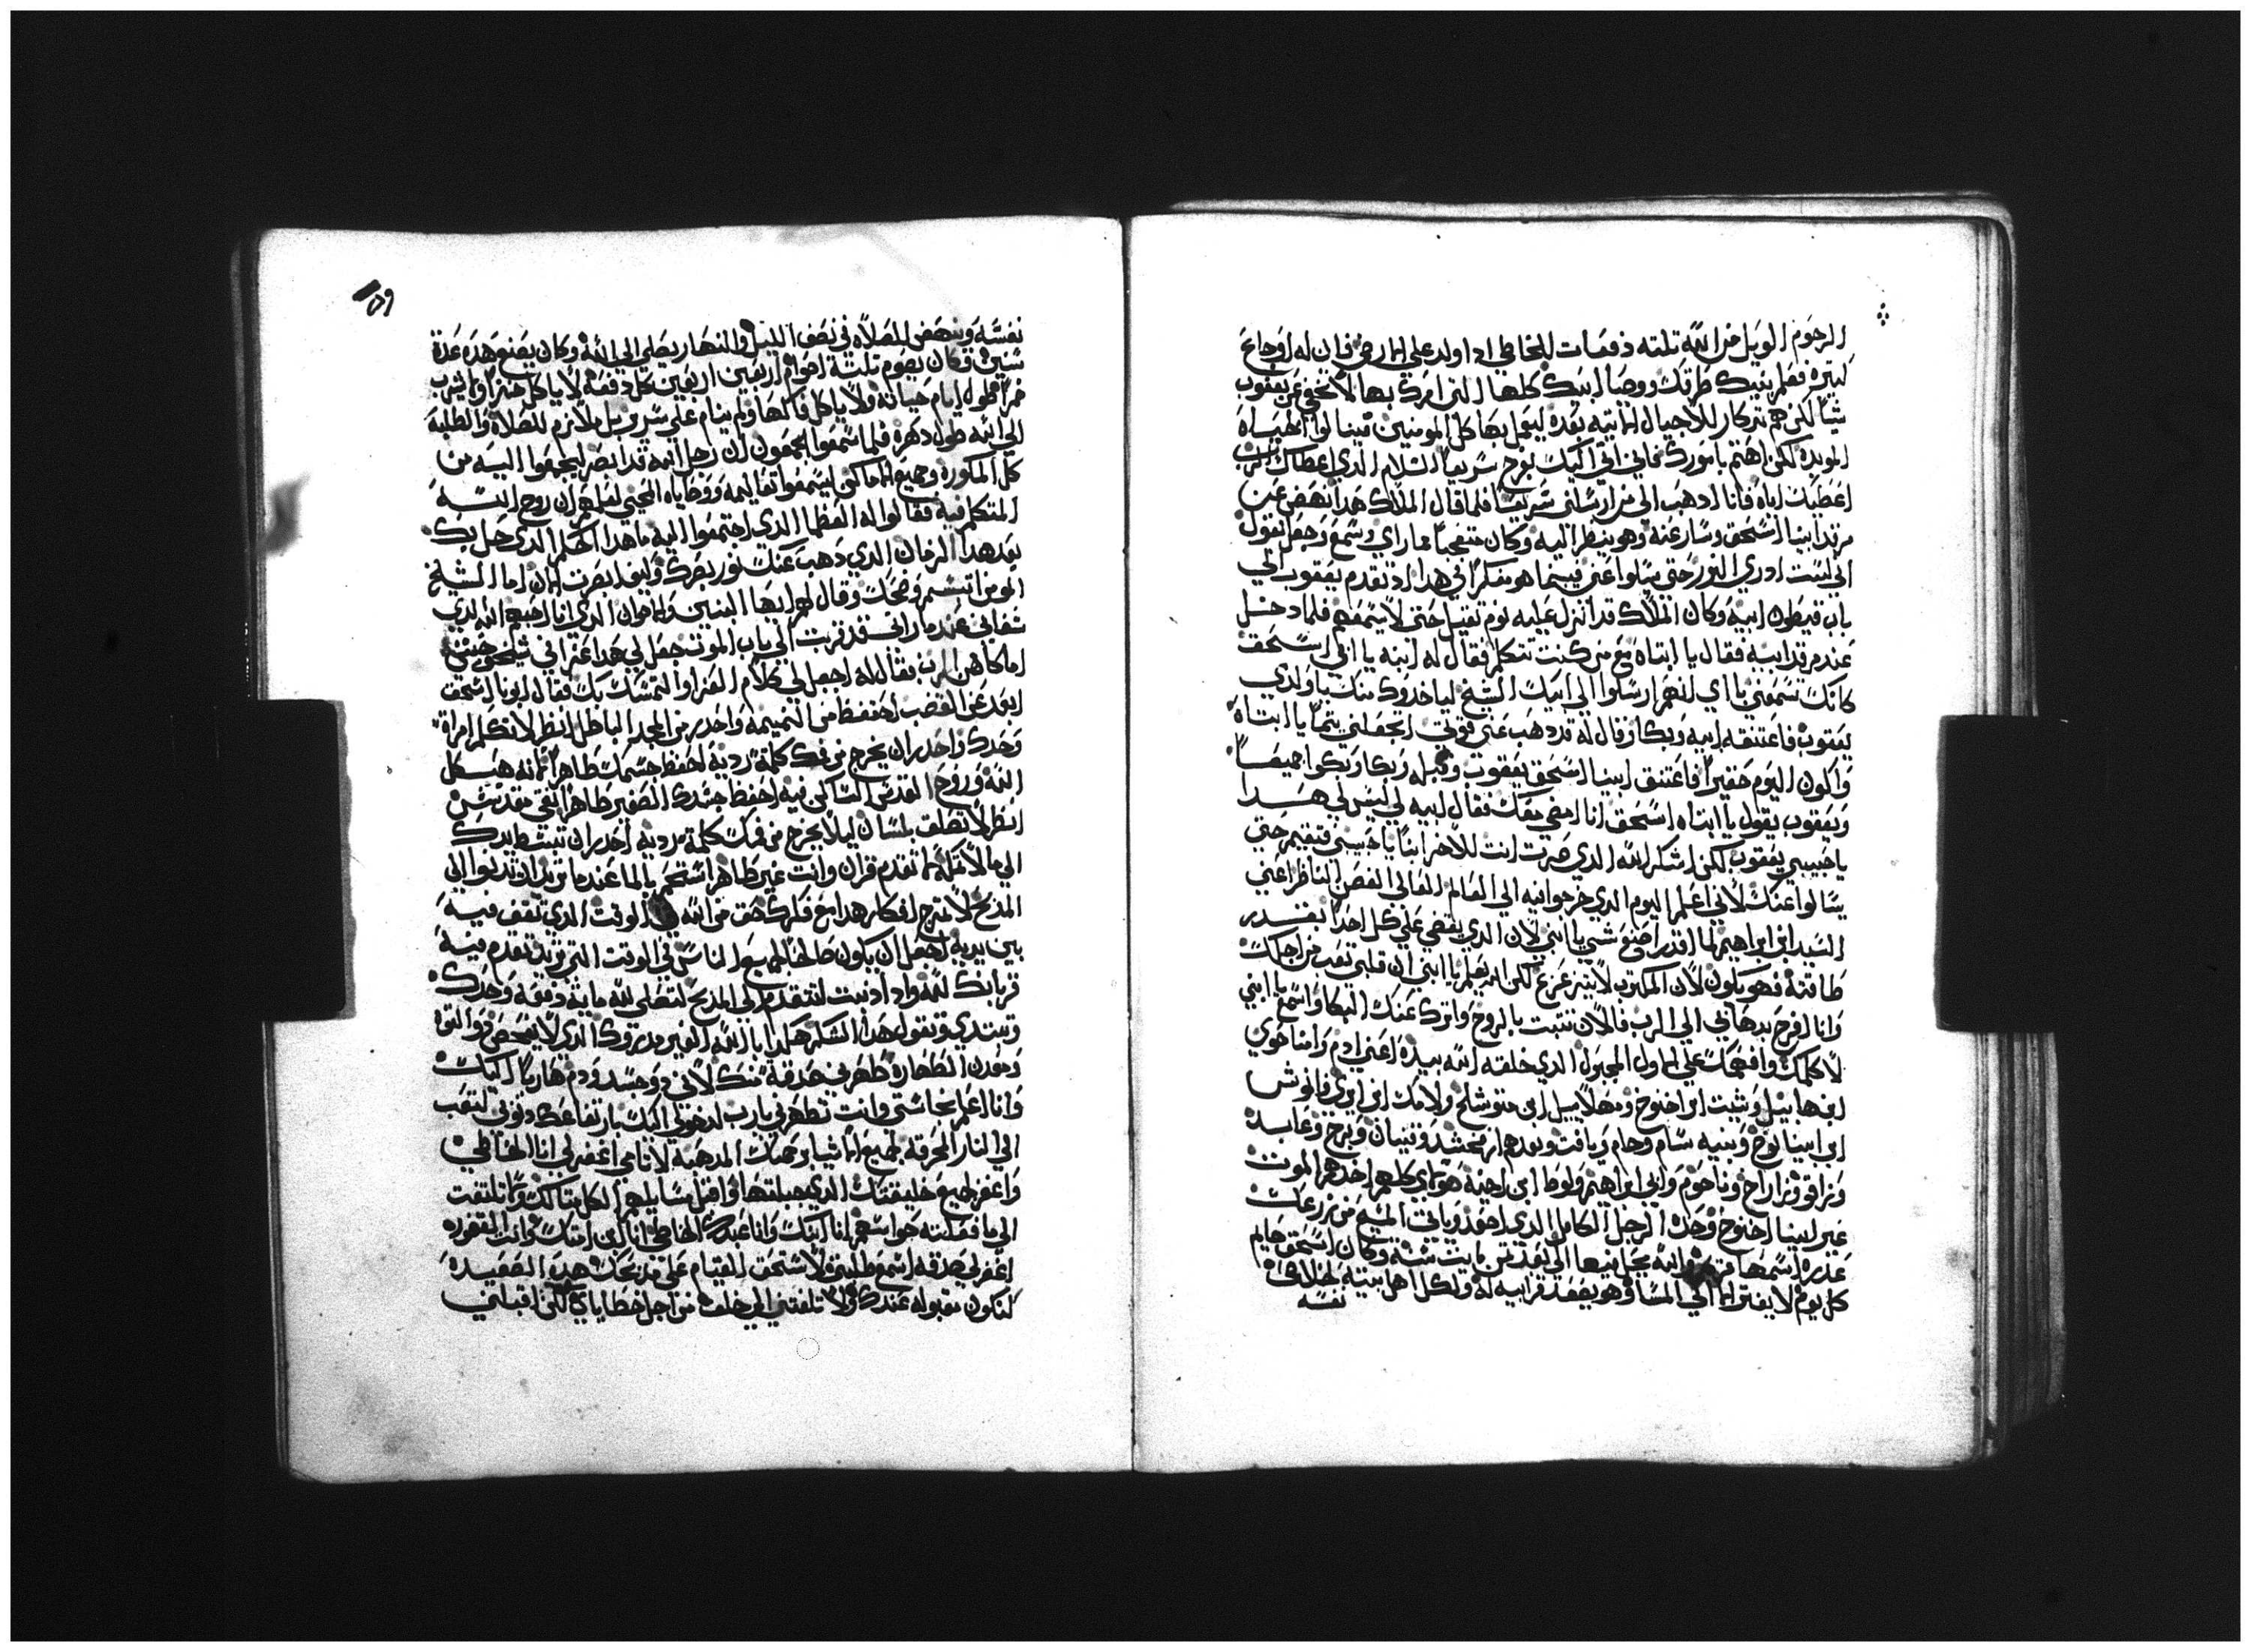 الرجوم الويل من الله تلته دفعات للخاطي اذا ولد علي الارض فان له اوجاع
كتيره فعلم بنيك طرقك ووصايا ابيك كلها التي امرك بها لا تخفي عن يعقوب
شياً لكن هم تدكار للاجيال الاتيه بعده ليعمل بها كل المومنين فينالوا الحياه
الموبده لكن اهتم بامورك فاني اتي اليك بفرح سريعاً السلام الدي اعطاك الرب
اعطيك اياه فانا ادهب الي من ارسلني سريعاً فلما قال الملاك هدا نهض عن
مرقد ابينا اسحق وسار عنه وهو ينظر اليه وكان متعجباً مما راي وسمع وجعل يقول
اني لست ادري النور حتي يسلوا عني فبينما هو مفكراً في هدا اد تقدم يعقوب الي
باب قيطون ابيه وكان الملاك قد انزل عليه نوم تقيل حتي لا يسمعهم فلما دخل
عند مرقد ابيه فقال يا ابتاه مع من كنت تتكلم فقال له ابيه يا ابني اسحق
كانك تسمعني يا ابني انهم ارسلوا الي ابيك الشيخ لياخدوك منك يا ولدي
يعقوب فاعتنقه ابيه وبكا وقال له قد دهب عني قوتي اتجعلني يتماً يا ابتاه
واكون اليوم حقيراً فاعتنق ابينا اسحق يعقوب وقبله وبكا وبكوا جميعاً
ويعقوب يقول يا ابتاه اسحق انا امضي معك فقال ابيه لي ليس لي هدا
يا حبيبي يعقوب لكن اشكر الله الدي صرت انت للاخر ابناً يا حبيبي فتقيم حتي
يسالوا عنك لاني اعلم اليوم الدي خرجوا فيه الي العالم العالي الغصن الناظر اعني
السيد ابن ابراهيم لما اقدر اصنع شي يا ابني لان الدي يقضي علي كل احداً بقدر
طاقته فهو يكون لان المكتوب لا يتزعزع لكن الله يعلم يا ابني ان قلبي تعب من اجلك
وانا افرح بدهابي الي الرب فالان تتبت بالروح واترك عنك البكا واسمع يا ابني
لاكلمك وافهمك علي الاول المجبول الدي خلقه الله بيده اعني ادم وامنا حوي
ابن هابيل وشيت ابن اخنوخ ومهلاييل ابن متوشلح ولامك ابن ايوي وانوش
ابن ابينا نوح وبنيه سام وحام ويافت وبعدهم ارفخشد وقينان ورعو وعابد
وتراقو وناراح وناحوم وابي ابراهيم ولوط ابن اخيه هولاي كلهم اخدهم الموت
غير ابينا اخنوخ وحده الرجل الكامل الدي اصعد وياتي المسيح من زرعك
عدره اسمها مريم والله يحل فيها الي بعد تمن مايت سنه وكان اسحق صايم
كل يوم لا يفتر الا الي المسا وهو يصعد قرابيه له ولكل اهل بيته لخلاص
نفسه
١٥٩
نفسه وينهض للصلاه في نصف الليل والنهار يصلي الي الله وكان يصنع هده عدة
سنين وكان يصوم تلتة اصوام اربعين اربعين كل دفعه لا ياكل خبزاً ولا يشرب
خمراً طول ايام حياته ولا ياكل فاكهه ولم ينام علي سرير بل ملازم للصلاه والطلبه
الي الله طول دهره فلما سمعوا الجموع ان رجل الله قد ابصر ليجمعوا اليه من
كل الكوره وجميع الاماكن ليسمعوا تعاليمه ووصاياه المحيي لعلمهم ان روح الله
المتكلم فيه فقالوا له العظما الدي اجتمعوا اليه ما هدا الحلم الدي حل بك
بعد هدا الزمان الدي دهب عنك نور بصرك وكيف ابصرت الان اما الشيخ
المومن ابتسم وضحك وقال لهم ايها البنين والاخوان الدي انا احبهم الله الدي
شفاني عندما راني قد قربت الي باب الموت جعل لي هدا عزا في شيخوختي
اما كاهن الرب فقال له اجعل لي كلام العزا والتمسك بك فقال ابونا اسحق
ابعد عن الغضب احتفظ من النميمه واحدر من المجد الباطل انظر لا تكلم امراة
وحدك واحدران يخرج من فمك كلمة رديه احفظ جسمك طاهراً لانه هيكل
الله وروح القدس الساكن فيه احفظ جسدك الصغير طاهراً نقي مقدس
انظر لا تحلف بلسانك ليلا يخرج من فمك كلمة رديه احدران تبسط يدك
الي مالا تملك لا تقدم قربان وانت غير طاهر استحم بالما عندما تريد ان تدنوا الي
المدبح لا تمزج افكار هدا مع فكرك حق من الله الوقت الدي تقف فيه
بين يديه اجعل ان يكون صالحاً لجميع الناس في الوقت التي تريد تقدم فيه
قربانك لله وادا دنيت لتتقدم الي المدبح لتصلي لله ماية دفعه وحدك
وتبتدي وتقول هدا الشكر هكدا يا الله الغير مدروك الدي لا يفحص دو القوه
ومعدن الطهاره طهرني صدقه منك لاني دو جسد ودم هارباً اليك
وانا اعلم نجاستي وانت تطهرني يارب لدهوتي اليك بارتفاعك دنوتي لتعب
الي النار المحرقه لجميع الاشيا رحمتك المدهبه لاتامي اغفر لي انا الخاطي
واغفر لجميع خليقتك الدي جبلتها واقبل مسايلهم الكل بتالك ولا تلتفت
الي ما فعلته حواسهم انا اليك وانا عبدك الخاطي انا ابن امتك وانت الغفوره
اغفر لي صدقه اسمع طلبتي لاستحق القيام علي مدبحك هده الصعيده
لتكون مقبوله عندك ولا تلفتني الي خلف من اجل خطاياي لكن اقبلني